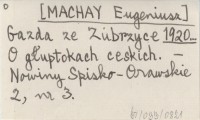 [MACHAY Eugeniusz]
Gazda ze Zubrzyce 1920...
O głuptokach ceskich. –
Nowiny Spisko-Orawskie
2, nr 3.